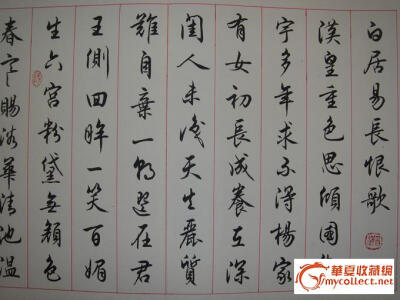 白居易長恨歌
漢皇重色思傾國
宇多年求不得楊家
有女初長成養在深
閨人未識天生麗質
難自棄一朝選在君
王側回眸一笑百媚
生六宮粉黛無顏色
春寒賜浴華清池溫
華夏收藏網
mycollect.net